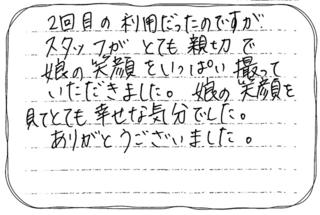 2回目の利用だったのですが
スタッフがとても親切で
娘の笑顔をいっぱい撮って
いただきました。娘の笑顔を
見てとても幸せな気分でした。
ありがとうございました。